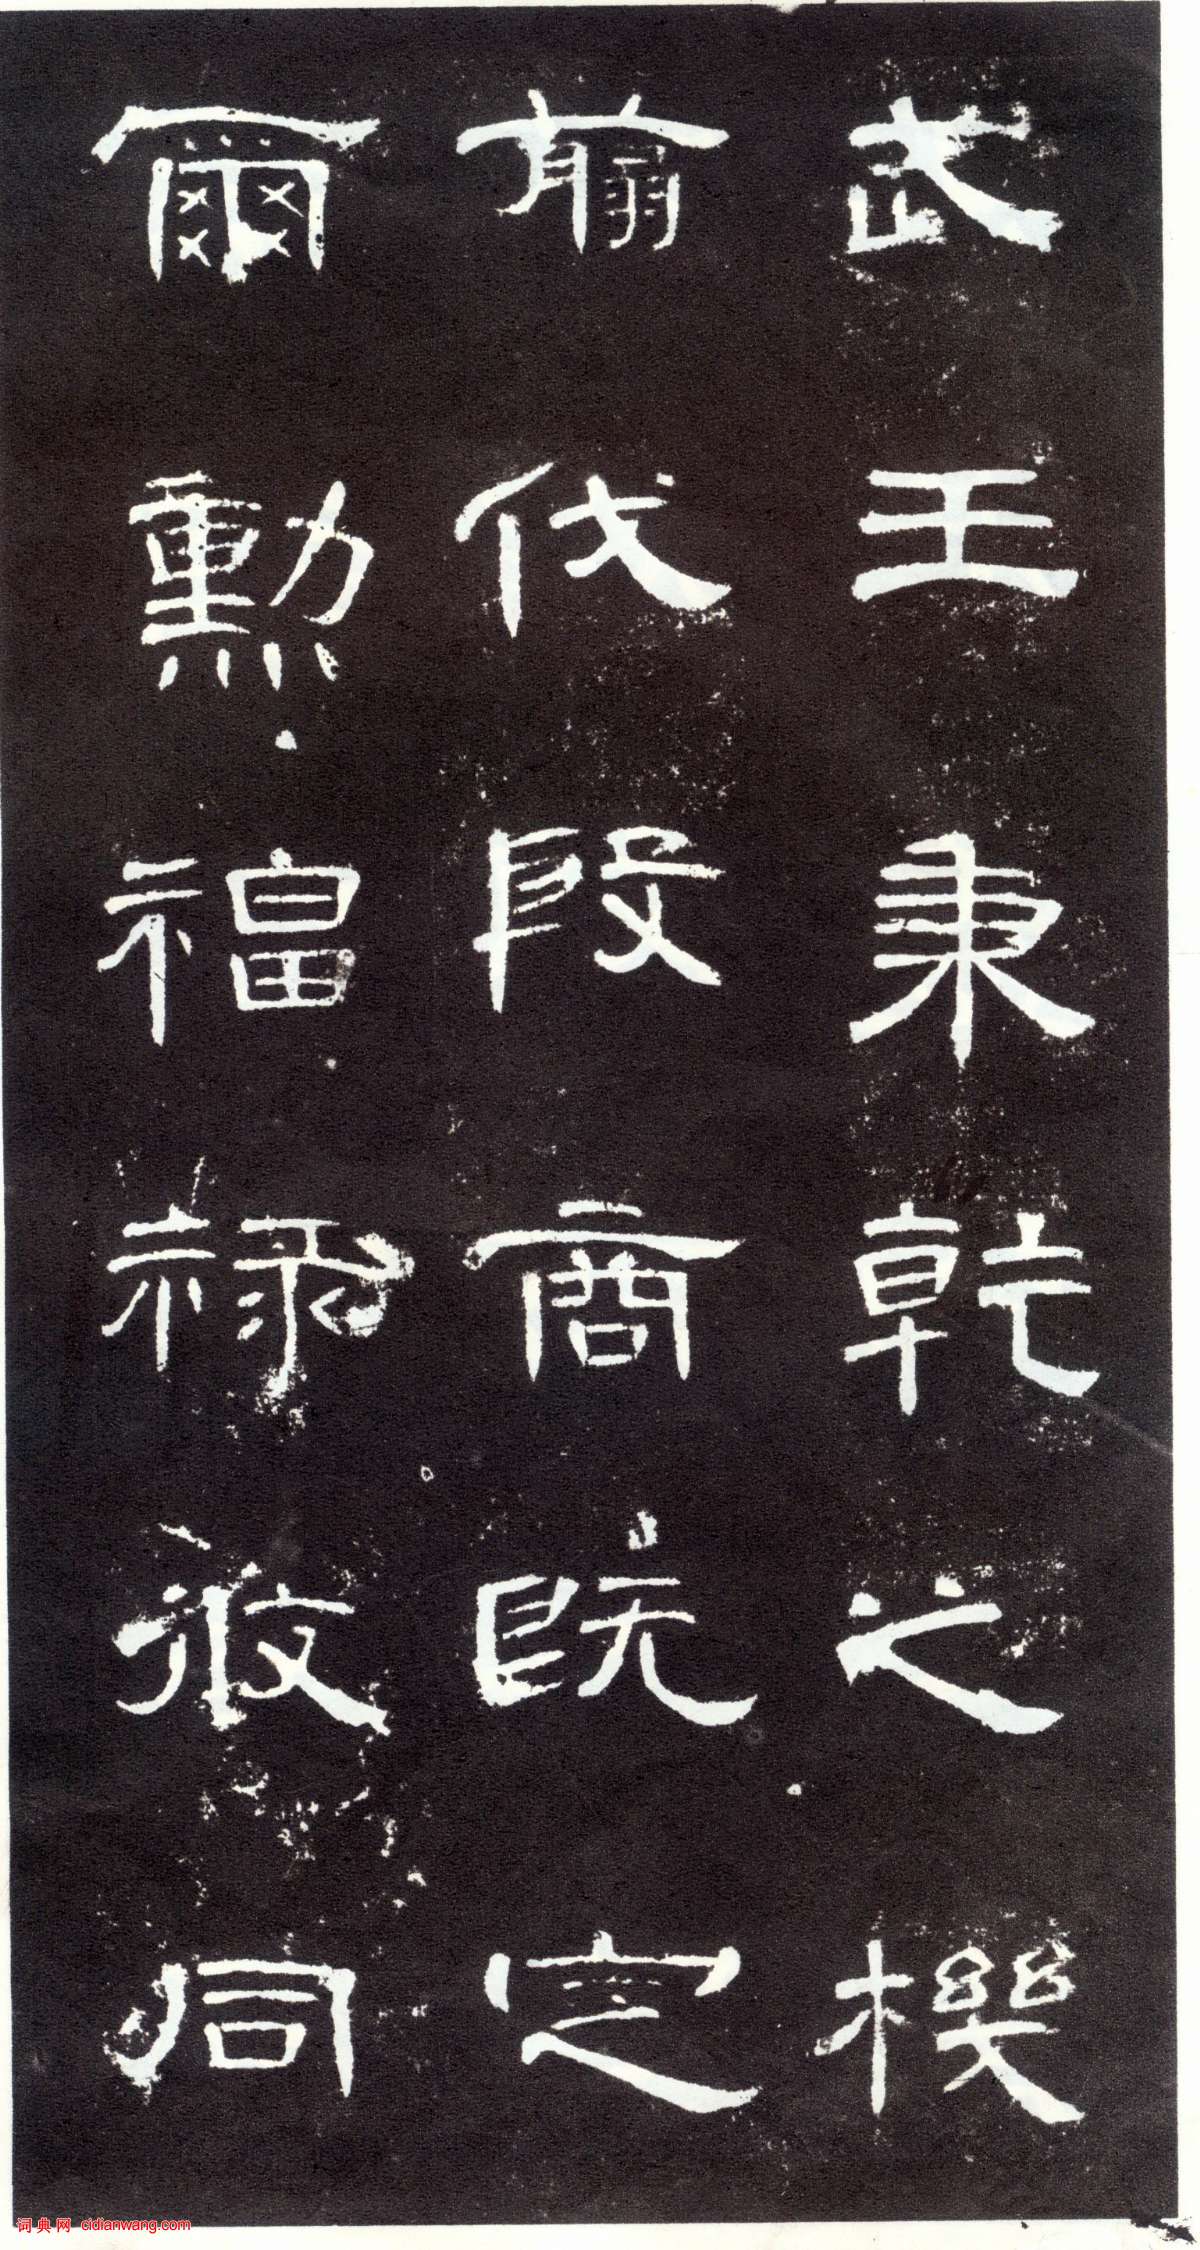 武王秉乾之機
翦伐殷商既定
爾勳福祿攸同
词典网 cidianwang.com